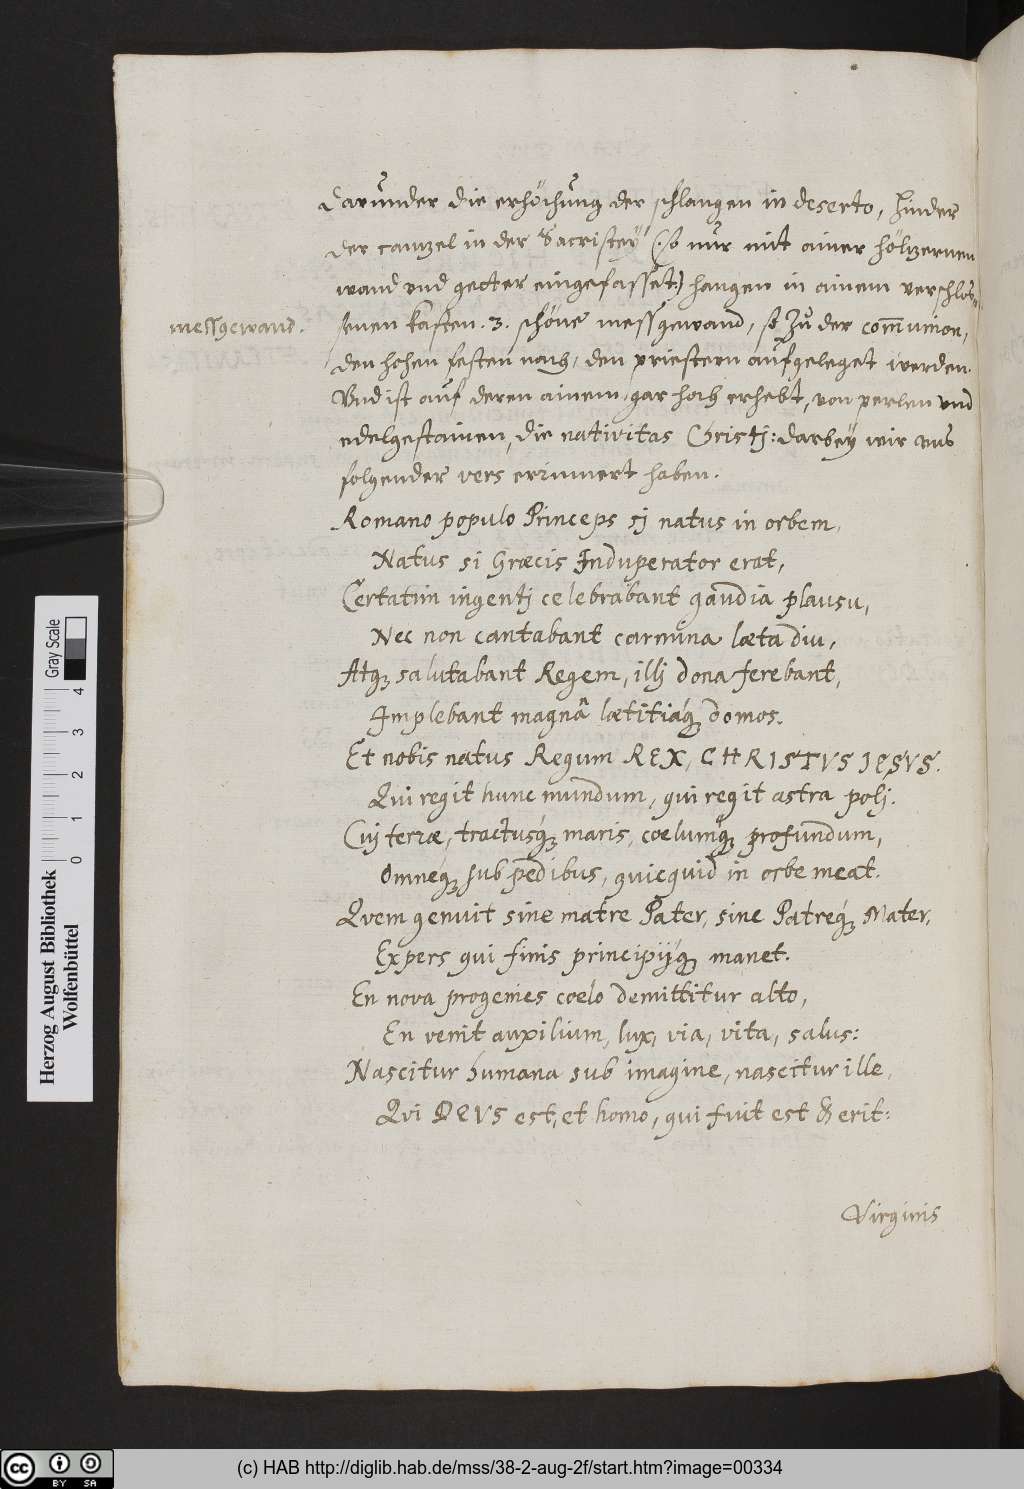 darunder die erhöchung der schlangen in deserto, hinder
der canzel in der Sacristeÿ (so nur mit ainer hölzernen
wand vnd getter eingefasset) hangen in ainem verschlos-
messgewand.
senen kasten .3. schöne messgewand, so zu der com̄union,
den hohen festen nach, den priestern aufgeleget werden.
Vnd ist auf deren ainem, gar hoch erhebt, von perlen vnd
edelgestainen, die nativitas Christj: darbeÿ wir vns
folgender vers erinnert haben.
Romano populo Princeps sj natus in orbem,
Natus si Græcis Induperator erat,
Certatim ingentj celebrabant gaudia plausu,
Nec non cantabant carmina læta diu,
Atq; salutabant Regem, illj dona ferebant,
Implebant magnâ lætitiáq; domos.
Et nobis natus Regum REX, CHRISTVS JESVS.
Qui regit hunc mundum, qui regit astra polj.
Cuj terræ, tractusq́; maris, coelumq́; profundum,
Omneq́; sub pedibus, quicquid in orbe meat.
Qvem genuit sine matre Pater, sine Patreq́; Mater,
Expers qui finis principijq́; manet.
En nova progenies coelo demittitur alto,
En venit auxilium, lux, via, vita, salus:
Nascitur humana sub imagine, nascitur ille,
Qvi DEVS est, et homo, qui fuit est & erit:
Virginis
Herzog August Bibliothek
Wolfenbüttel
0 1 2 3 4
Gray Scale
cc BY SA
(c) HAB http://diglib.hab.de/mss/38-2-aug-2f/start.htm?image=00334